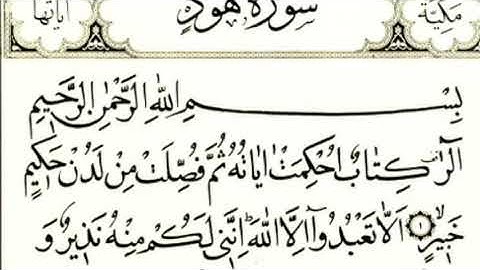 مكية سورة هود آياتها
بِسْمِ اللهِ الرَّحْمٰنِ الرَّحِيمِ
الٓرٰ كِتَابٌ اُحْكِمَتْ اٰيَاتُهُ ثُمَّ فُصِّلَتْ مِنْ لَدُنْ حَكِيمٍ
خَبِيرٍ ١ اَلَّا تَعْبُدُوٓا اِلَّا اللهَ اِنَّنِي لَكُمْ مِنْهُ نَذِيرٌ وَ